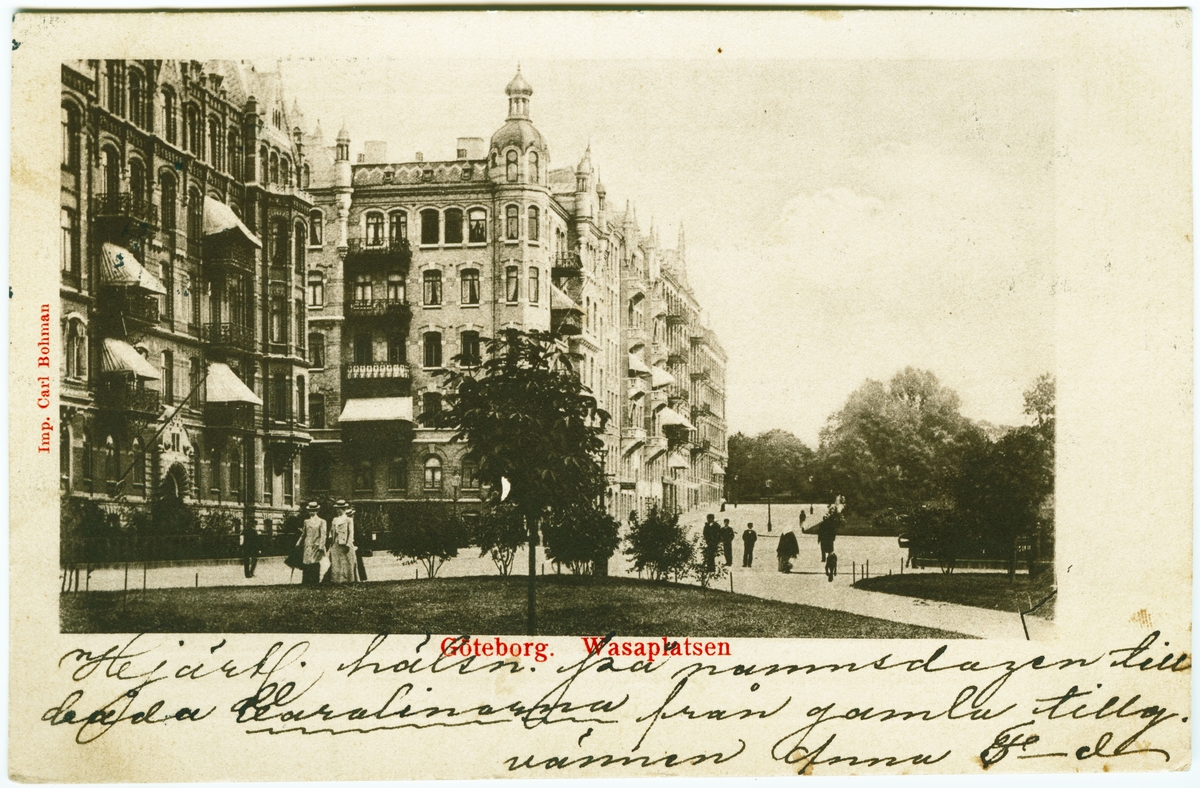 Imp. Carl Bohman
Göteborg. Wasaplatsen
Hjärtl. hälsn. på namnsdagen till
båda Carolinorna från gamla tillg.
vännen Anna